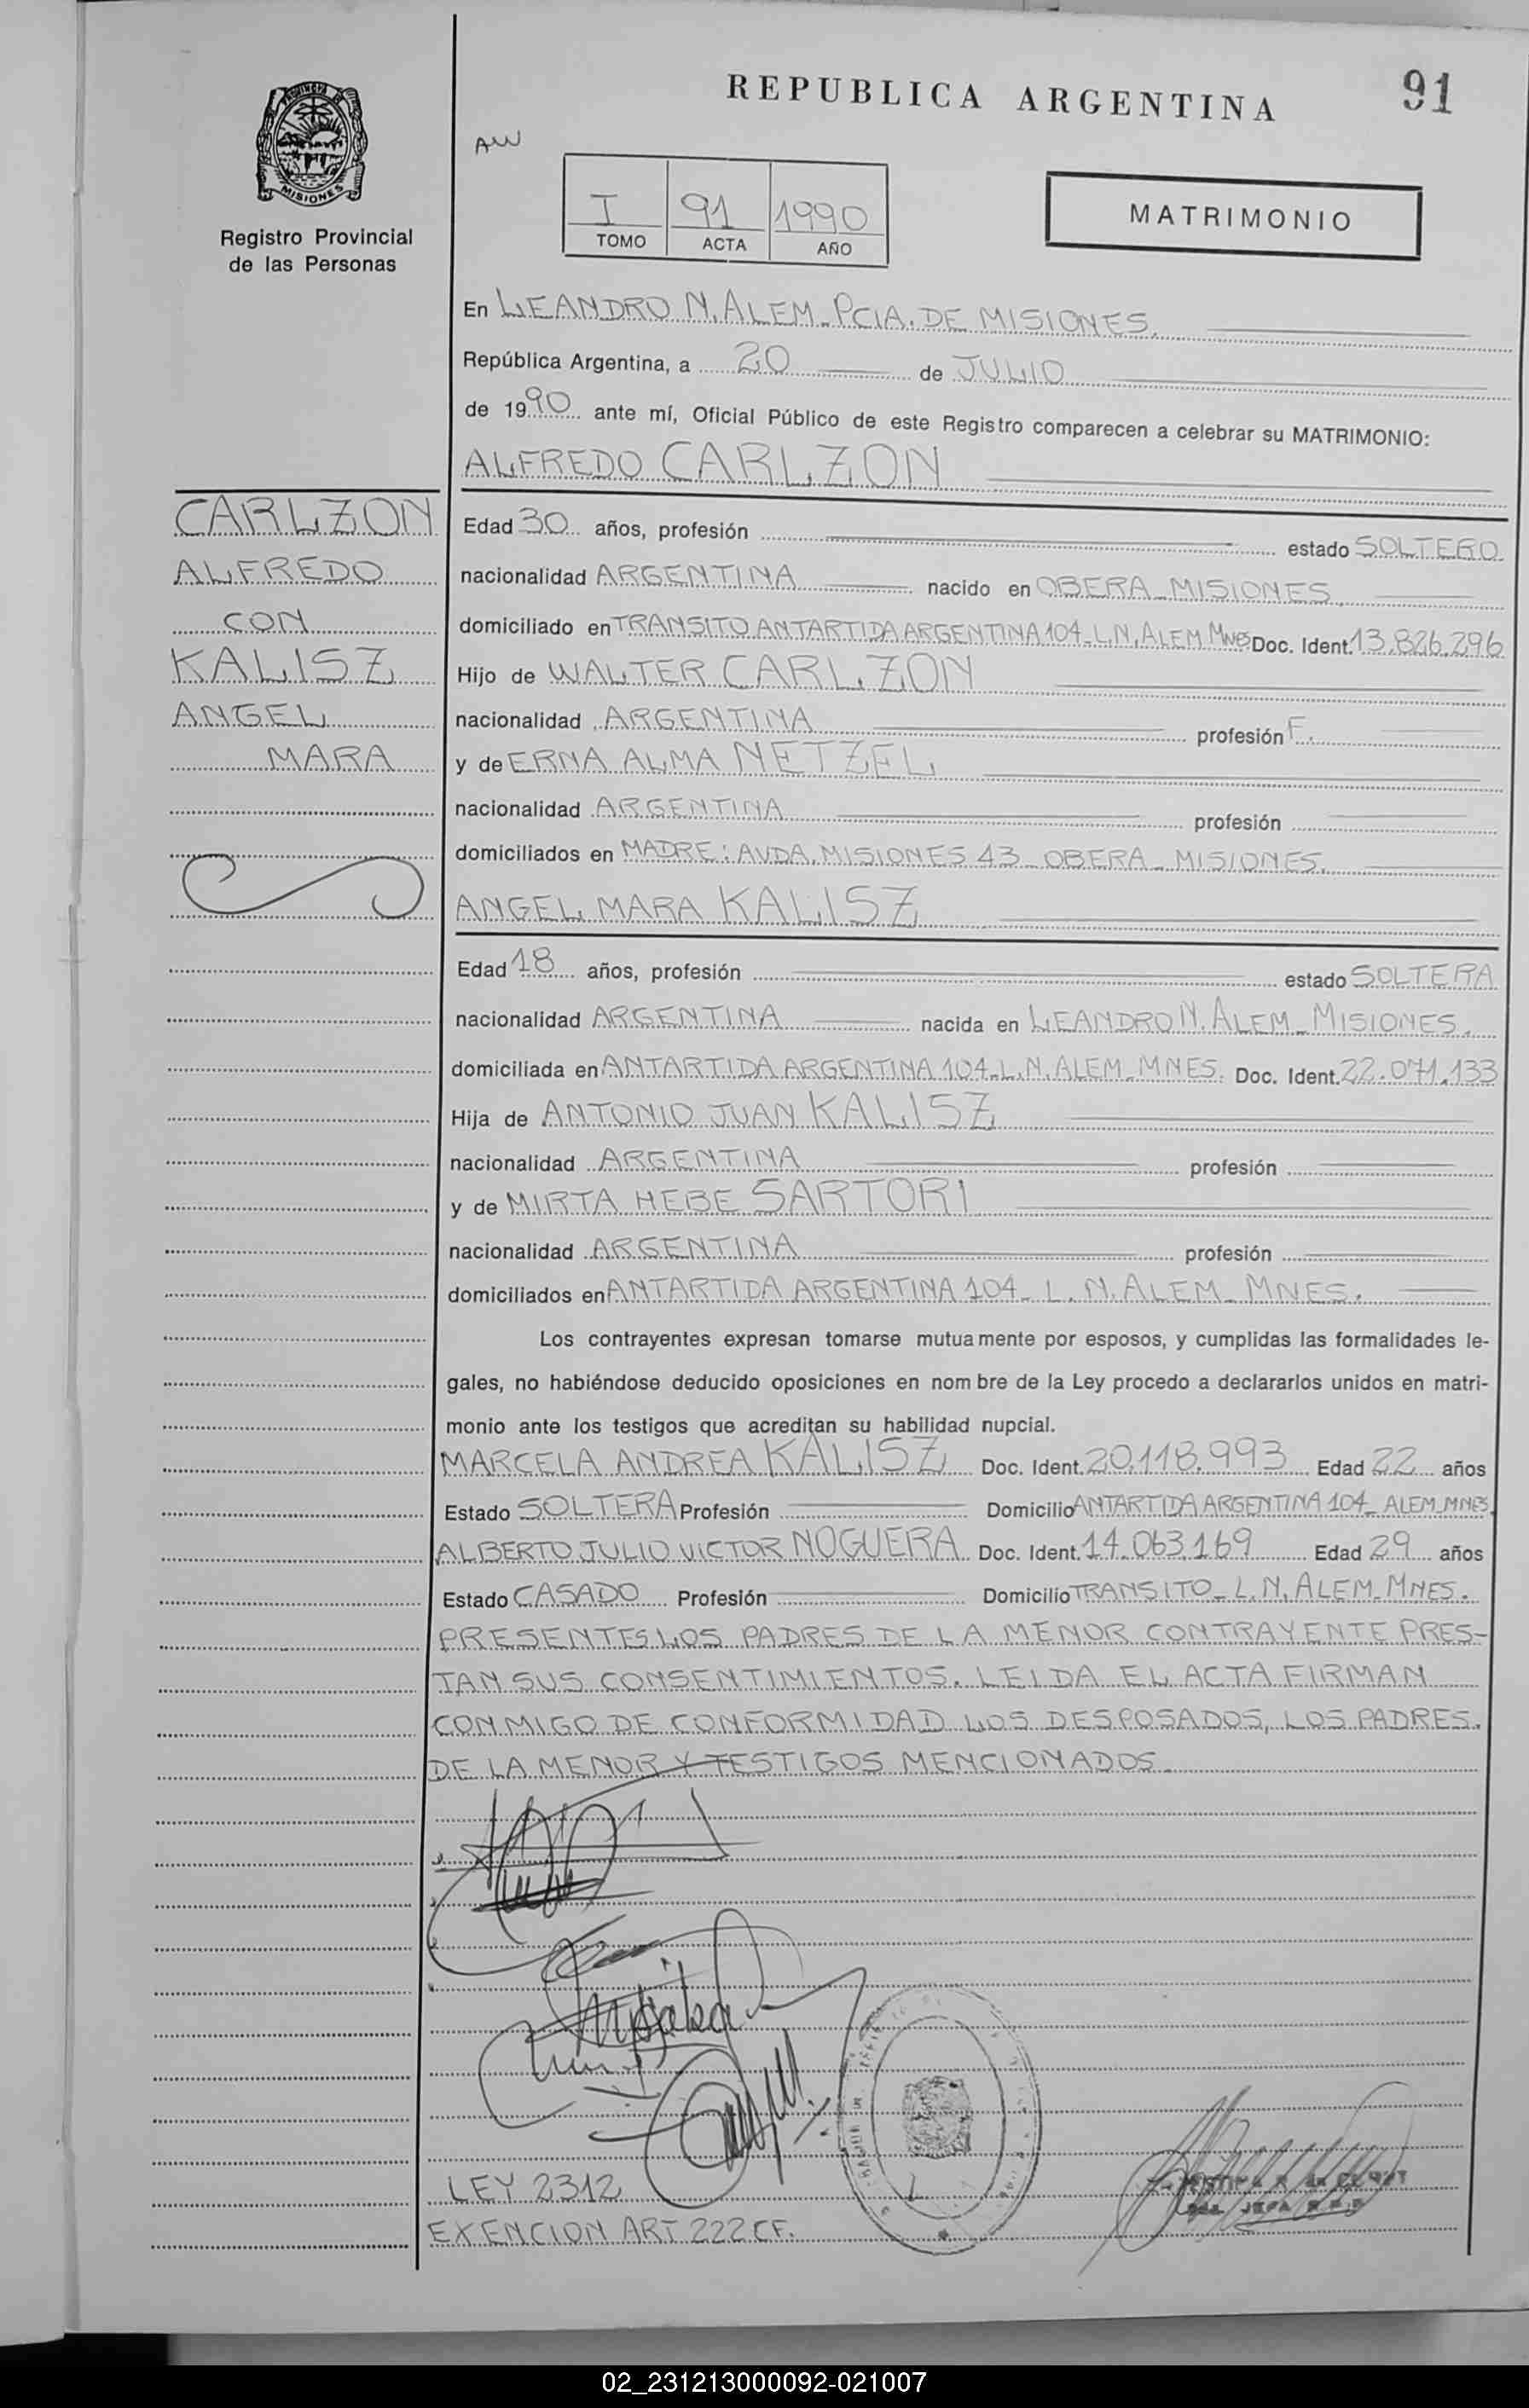 REPUBLICA ARGENTINA
91
AW
PROVINCIA DE
MISIONES
Registro Provincial
de las Personas
I 91 1990
TOMO ACTA AÑO
MATRIMONIO
En LEANDRO N. ALEM - PCIA. DE MISIONES.
República Argentina, a 20 de JULIO
de 1990 ante mí, Oficial Público de este Registro comparecen a celebrar su MATRIMONIO:
ALFREDO CARLZON
CARLZON
ALFREDO
CON
KALISZ
ANGEL
MARA
Edad 30 años, profesión estado SOLTERO
nacionalidad ARGENTINA nacido en OBERA - MISIONES
domiciliado en TRANSITO ANTARTIDA ARGENTINA 104 - L.N. ALEM Mnes Doc. Ident. 13.826.296
Hijo de WALTER CARLZON
nacionalidad ARGENTINA profesión F.
y de ERNA ALMA NETZEL
nacionalidad ARGENTINA profesión
domiciliados en MADRE: AVDA. MISIONES 43 - OBERA - MISIONES.
ANGEL MARA KALISZ
Edad 18 años, profesión estado SOLTERA
nacionalidad ARGENTINA nacida en LEANDRO N. ALEM - MISIONES.
domiciliada en ANTARTIDA ARGENTINA 104 - L.N. ALEM - MNES. Doc. Ident. 22.071.133
Hija de ANTONIO JUAN KALISZ
nacionalidad ARGENTINA profesión
y de MIRTA HEBE SARTORI
nacionalidad ARGENTINA profesión
domiciliados en ANTARTIDA ARGENTINA 104 - L. N. ALEM - MNES.
Los contrayentes expresan tomarse mutuamente por esposos, y cumplidas las formalidades le-
gales, no habiéndose deducido oposiciones en nombre de la Ley procedo a declararlos unidos en matri-
monio ante los testigos que acreditan su habilidad nupcial.
MARCELA ANDREA KALISZ Doc. Ident. 20.118.993 Edad 22 años
Estado SOLTERA Profesión Domicilio ANTARTIDA ARGENTINA 104 - ALEM - MNES.
ALBERTO JULIO VICTOR NOGUERA Doc. Ident. 14.063.169 Edad 29 años
Estado CASADO Profesión Domicilio TRANSITO - L. N. ALEM - MNES.
PRESENTES LOS PADRES DE LA MENOR CONTRAYENTE PRES-
TAN SUS CONSENTIMIENTOS. LEIDA EL ACTA FIRMAN
CONMIGO DE CONFORMIDAD LOS DESPOSADOS, LOS PADRES
DE LA MENOR Y TESTIGOS MENCIONADOS
LEY 2312
EXENCION ART. 222 CF.
02_231213000092-021007